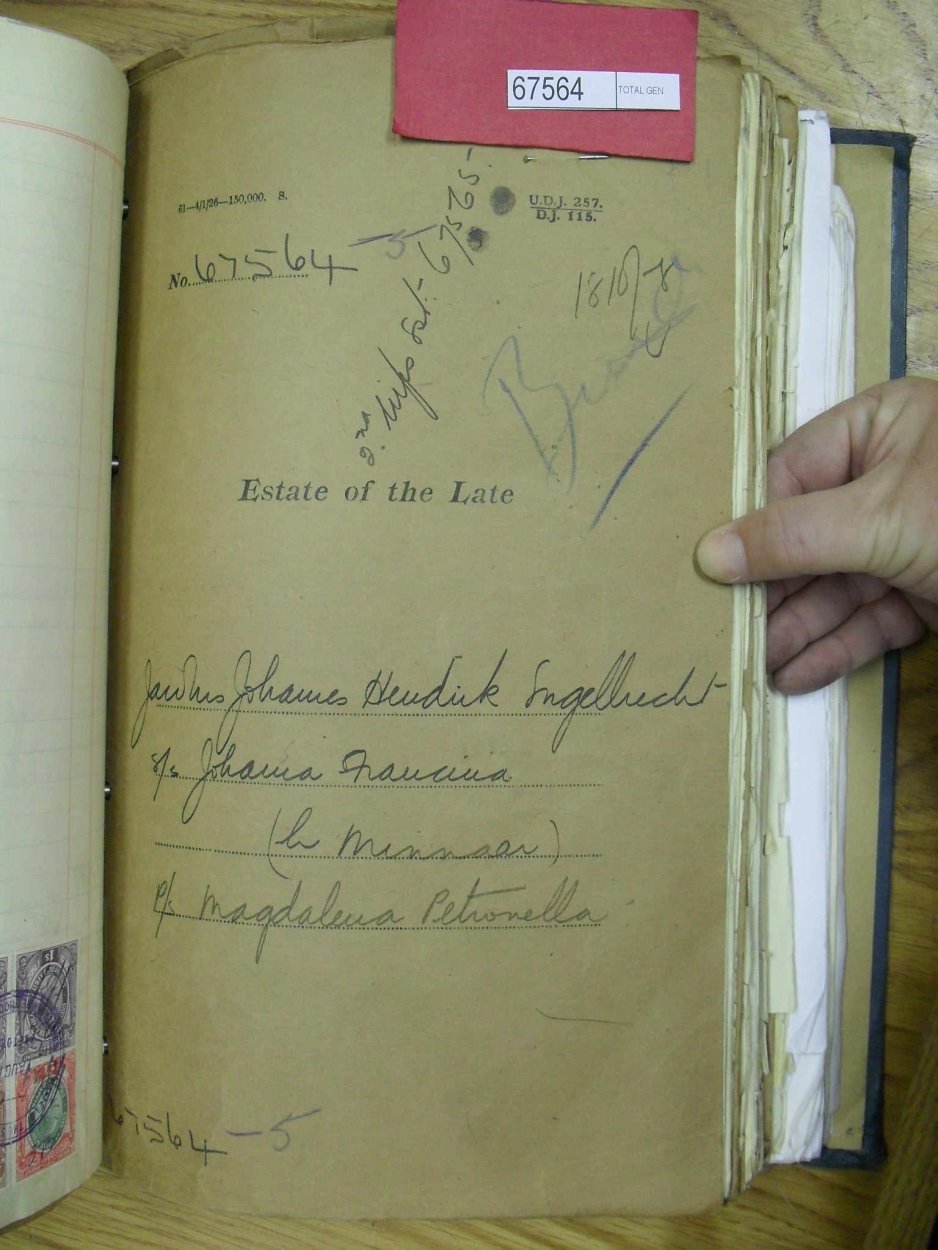 67564 TOTAL GEN
61—4/1/26—150,000. S.
U.D.J. 257.
D.J. 115.
No. 67564 - 5
2nd Wife's Est:- 67565
Estate of the Late
Johannes Hendrik Engelbrecht
s/s Johanna Francina
(b Minnaar)
p/s Magdalena Petronella
67564 - 5